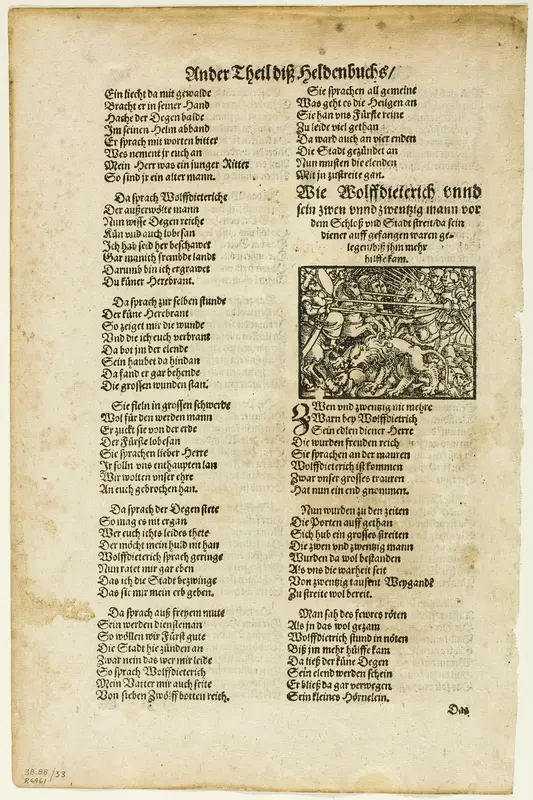 Ander Theil diß Heldenbuchs/
Ein liecht da mit gewalde
Bracht er in seiner Hand
Hache der Degen balde
Im seinen Helm abband
Er sprach mit worten bitter
Wes nement jr euch an
Mein Herr was ein junger Ritter
So sind jr ein alter mann.
Da sprach Wolffdieteriche
Der außerwölte mann
Nun wisse Degen reiche
Kün vnd auch lobesan
Ich hab seid her beschawet
Gar manich frembde lande
Darumb bin ich ergrawet
Du küner Herebrant.
Da sprach zur selben stunde
Der küne Herebrant
So zeiget mir die wunde
Vnd die ich euch verbant
Da bot jm der elende
Sein haubet da hindan
Da fand er gar behende
Die grossen wunden stan.
Sie fieln in grossen schwerde
Wol für den werden mann
Er zuckt sie von der erde
Der Fürste lobesan
Sie sprachen lieber Herre
Ir solln vns enthaupten lan
Wir wolten vnser ehre
An euch gebrochen han.
Da sprach der Degen stete
So mag es nit ergan
Wer euch ichts leides thete
Der möcht mein huld nit han
Wolffdieterich sprach geringe
Nun ratet mir gar eben
Das ich die Stadt bezwinge
Das sie mir mein erb geben.
Da sprach auß freyem mute
Sein werden diensteman
So wöllen wir Fürst gute
Die Stadt hie zünden an
Zwar nein das wer mir leide
So sprach Wolffdieterich
Mein Vatter mir auch seite
Von sieben Zwölff botten reich.
Sie sprachen all gemeine
Was geht es die Heilgen an
Sie han vns Fürste reine
Zu leide viel gethan
Da ward auch an vier enden
Die Stadt gezündet an
Nun musten die elenden
Mit jn zustreite gan.
Wie Wolffdieterich vnnd
sein zwen vnnd zwentzig mann vor
dem Schloß vnd Stadt streit/da sein
diener auff gefangen waren ge-
legen/biß jhm mehr
hülffe kam.
ZWen vnd zwentzig nit mehre
Warn bey Wolffdietrich
Sein edlen diener Herre
Die wurden freuden reich
Sie sprachen an der mauren
Wolffdieterich ist kommen
Zwar vnser grosses trauren
Hat nun ein end gnommen.
Nun wurden zu den zeiten
Die Porten auff gethan
Sich hub ein grosses streiten
Die zwen vnd zwentzig mann
Wurden da wol bestanden
Als vns die warheit seit
Von zwentzig tausent Weygande
Zu streite wol bereit.
Man sah des fewres röten
Als jn das wol gezam
Wolffdietrich stund in nöten
Biß jm mehr hülffe kam
Da ließ der küne Degen
Sein elend werden schein
Er bließ da gar verwegen
Sein kleines Hörnelein.
Das
38.88/33